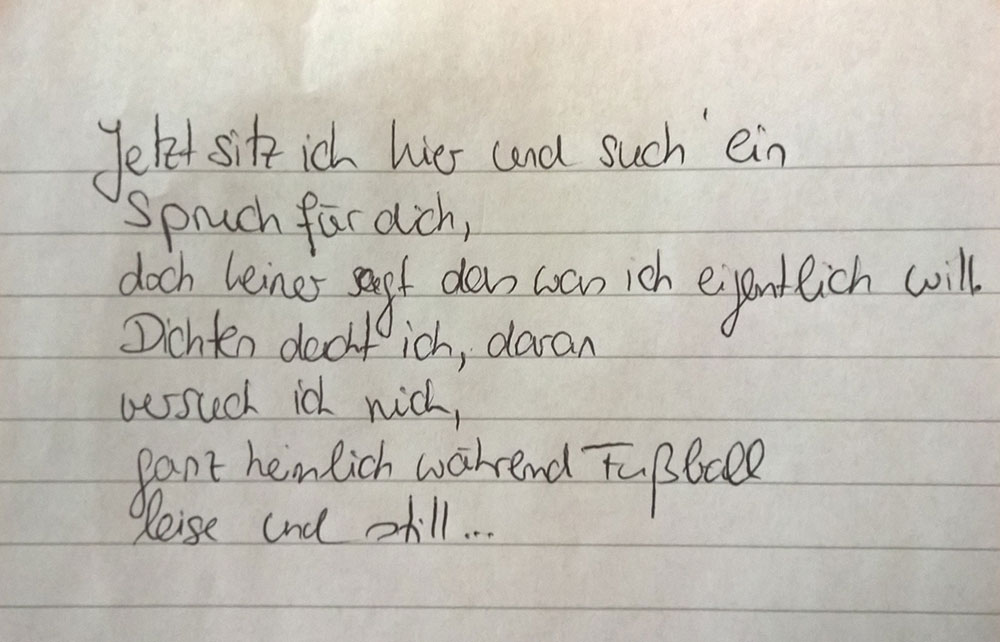 Jetzt sitz ich hier und such' ein
Spruch für dich,
doch keiner sagt das was ich eigentlich will.
Dichten dacht ich, daran
versuch ich mich,
ganz heimlich während Fußball
leise und still...